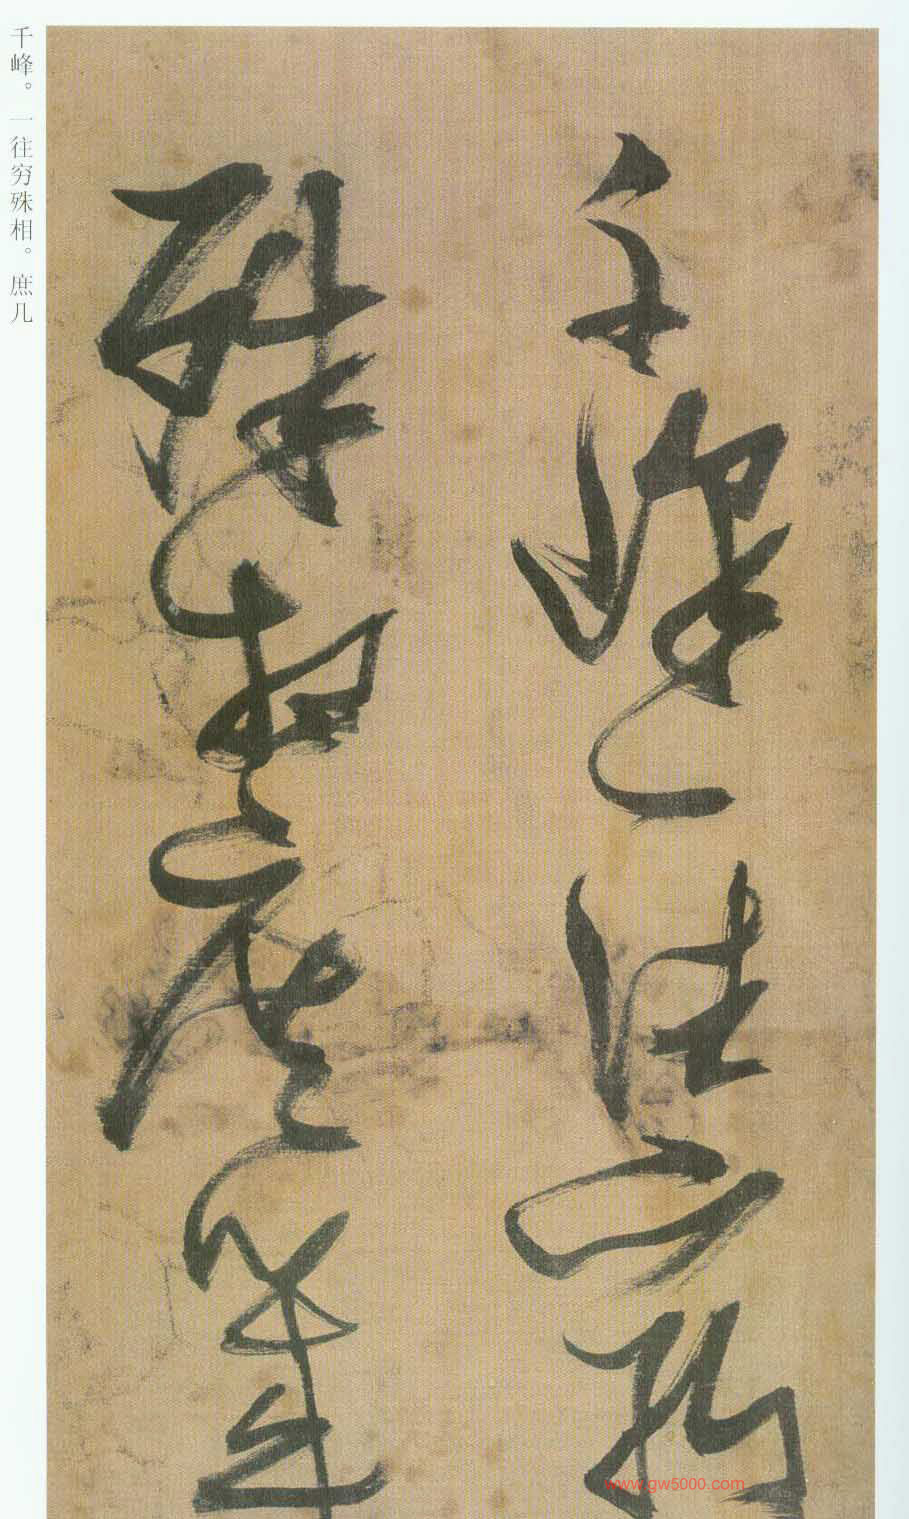 千峰一往穷
殊相庶几
千峰。一往穷殊相。庶几
www.gw5000.com